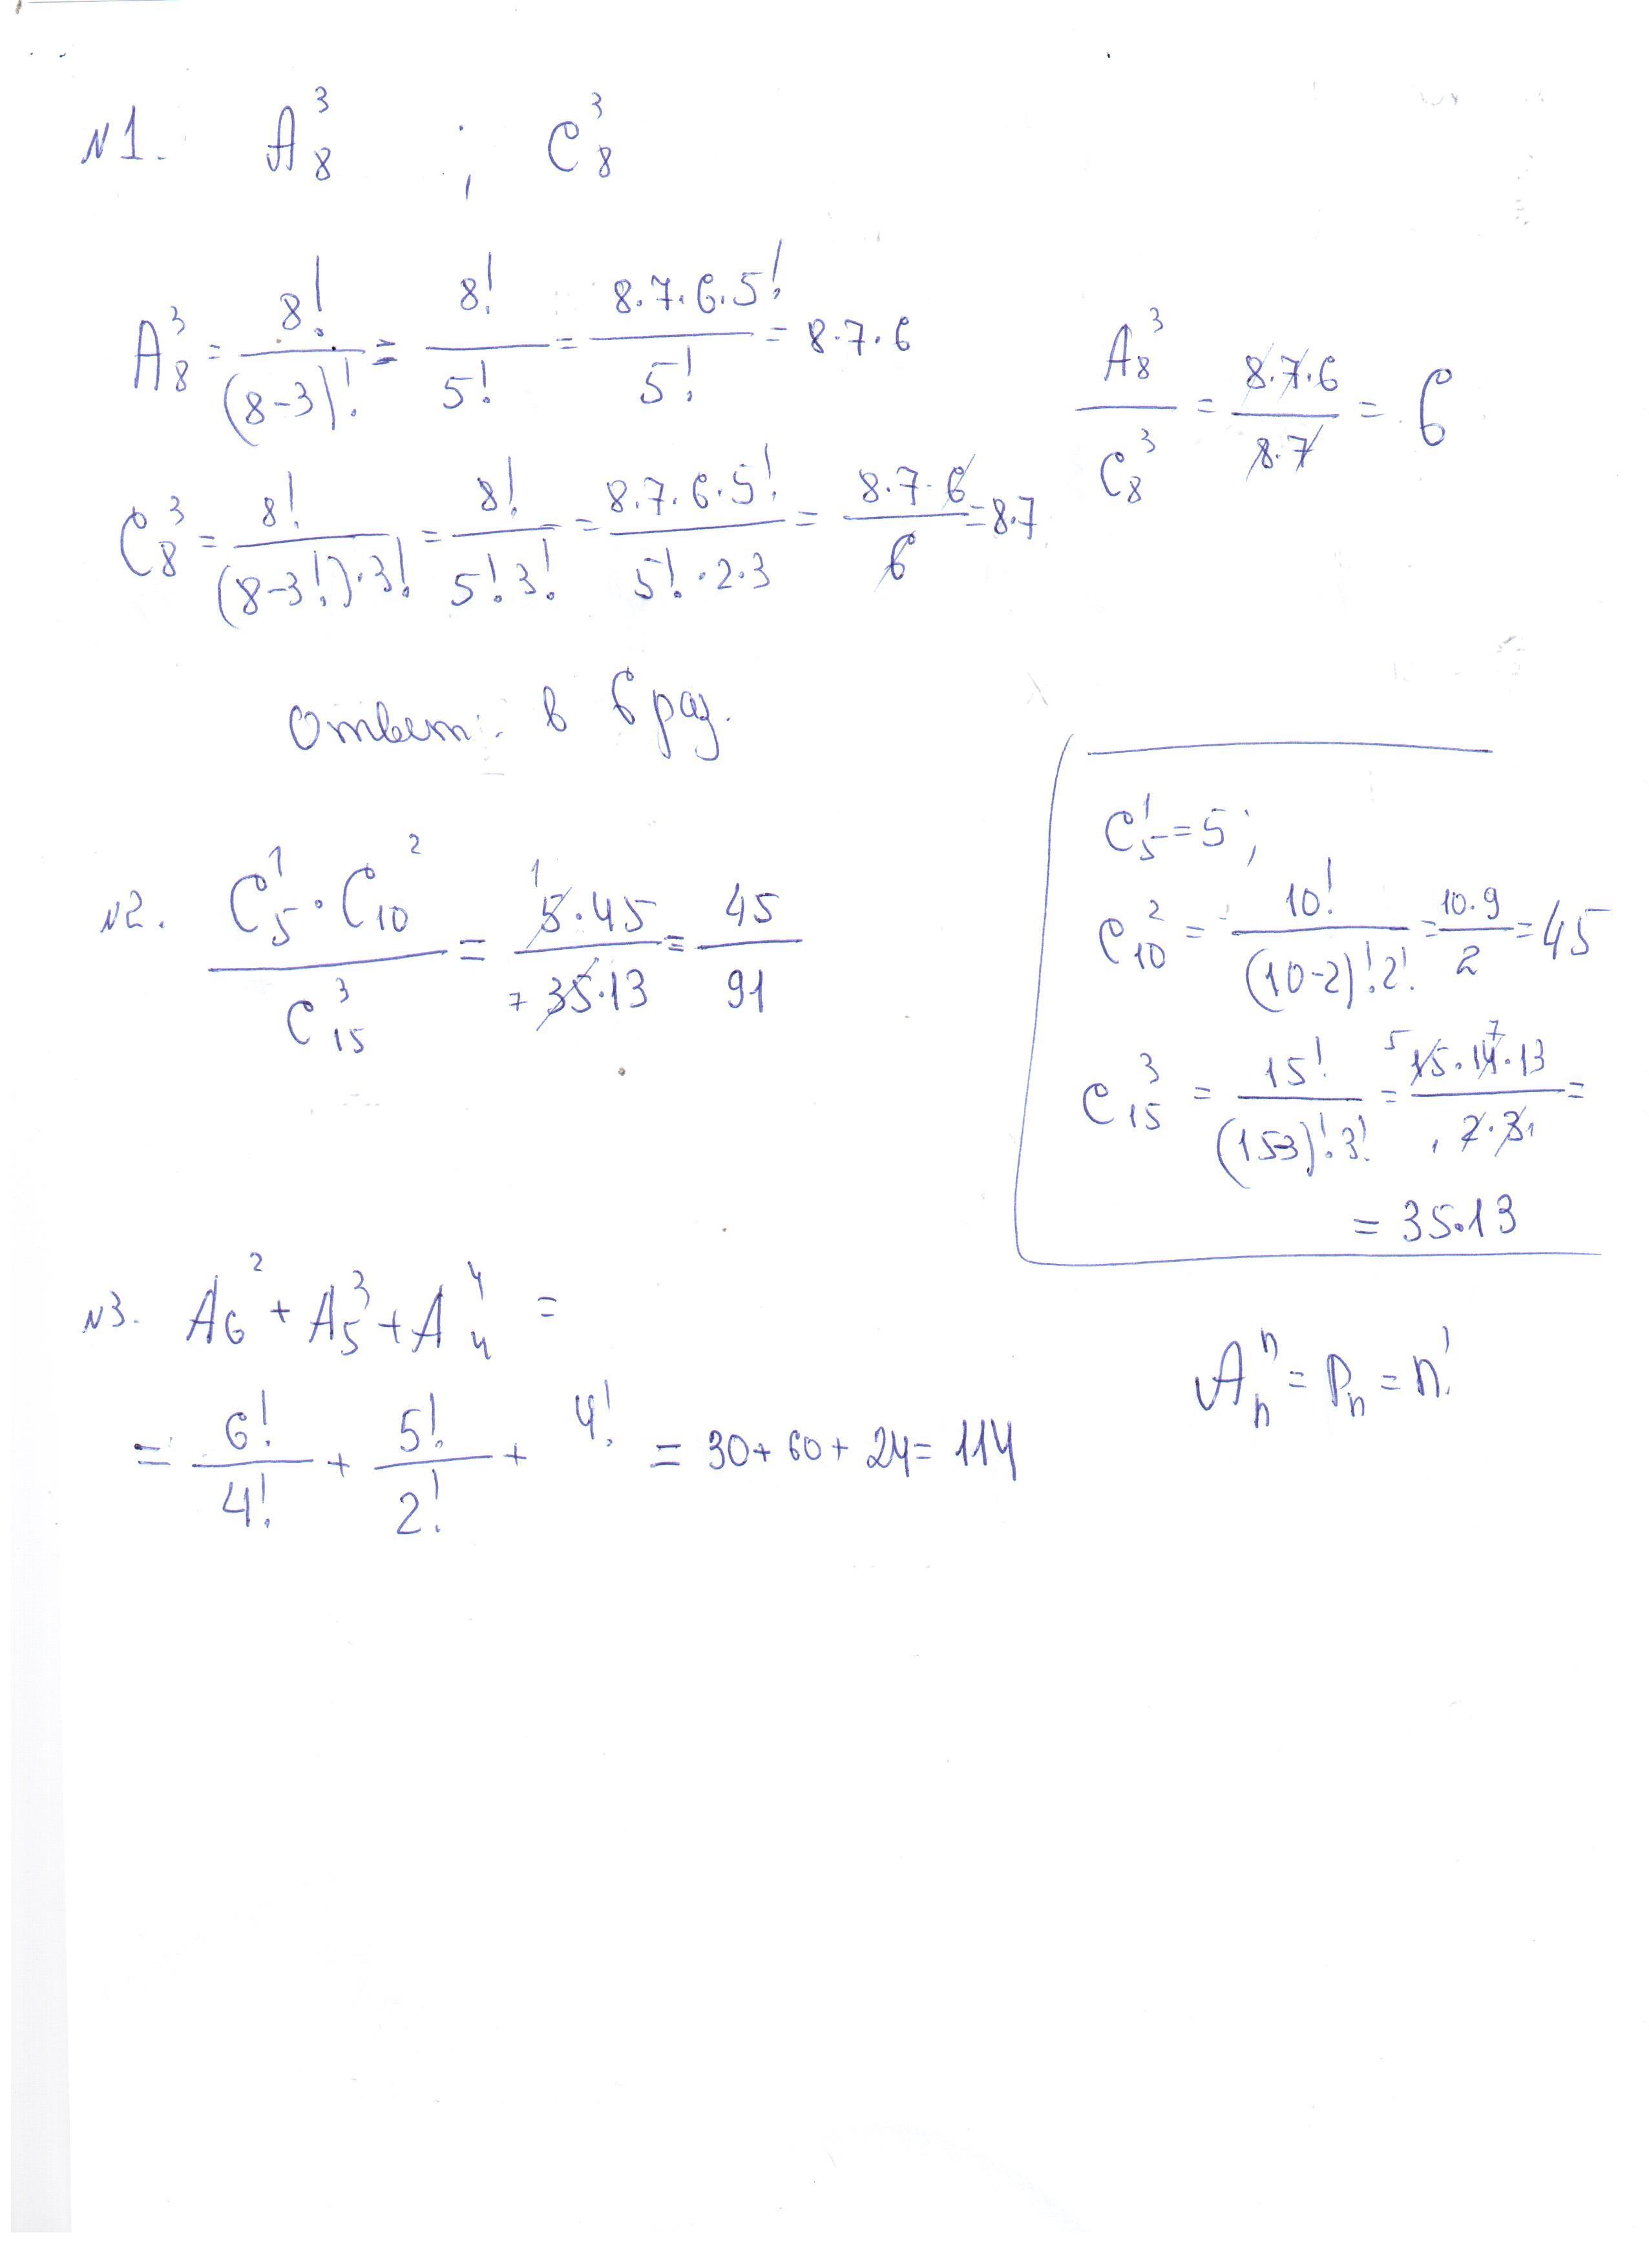 №1. A₈³ ; C₈³
A₈³ = 8!/(8-3)! = 8!/5! = 8·7·6·5!/5! = 8·7·6
A₈³/C₈³ = 8·7·6/8·7 = 6
C₈³ = 8!/(8-3!)·3! = 8!/5!3! = 8·7·6·5!/5!·2·3 = 8·7·6/6 = 8·7
Ответ: в 6 раз.
№2. C₅¹·C₁₀²/C₁₅³ = 5·45/35·13 = 45/91
C₅¹ = 5;
C₁₀² = 10!/(10-2)!2! = 10·9/2 = 45
C₁₅³ = 15!/(15-3)!3! = 15·14·13/2·3 =
= 35·13
№3. A₆² + A₅³ + A₄⁴ =
= 6!/4! + 5!/2! + 4! = 30 + 60 + 24 = 114
Aₙⁿ = Pₙ = n!